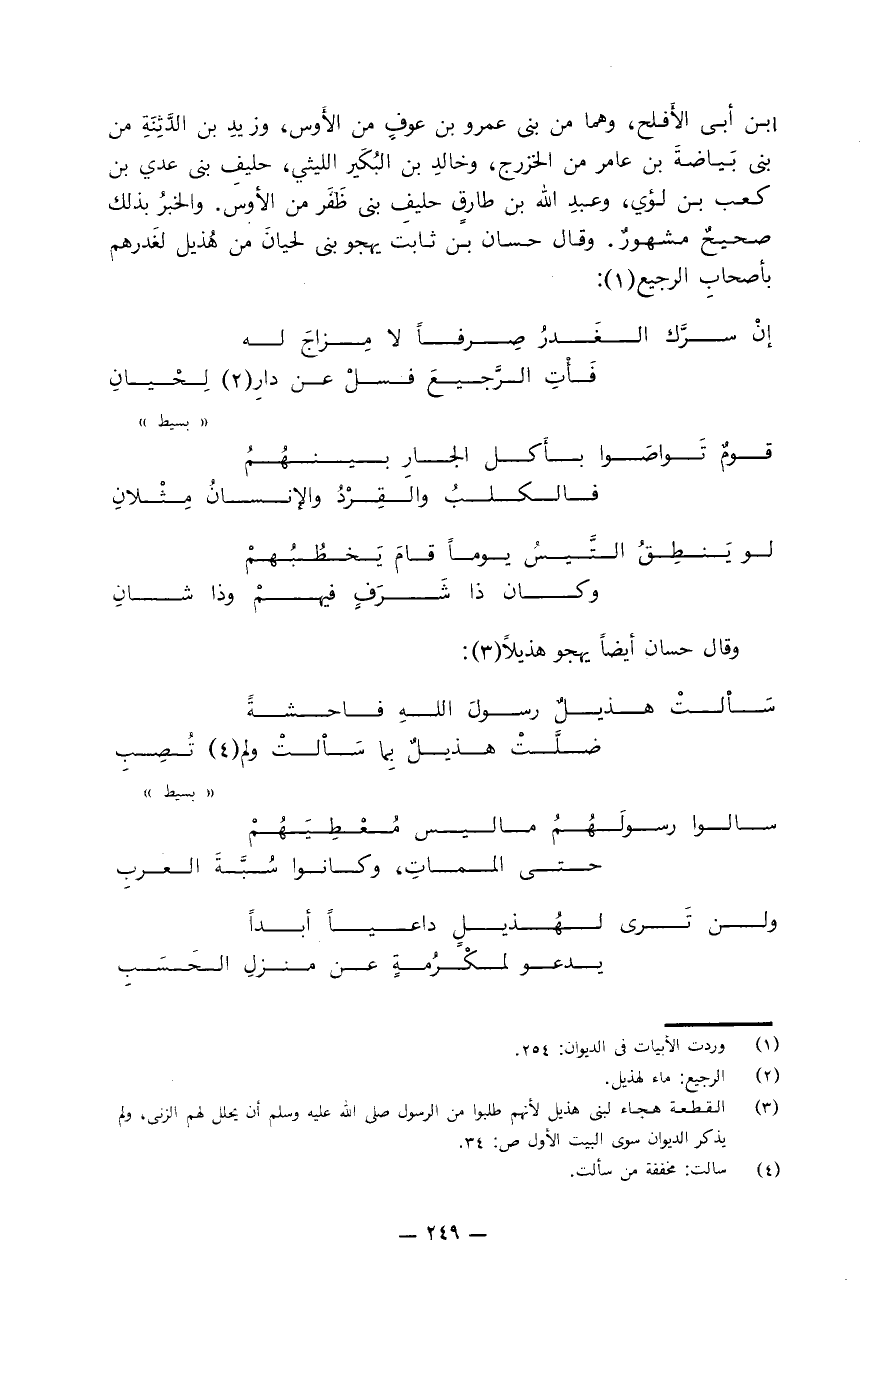 ابن أبى الأَفلح، وهما من بنى عمرو بن عوفٍ من الأَوس، وزيدِ بن الدَّثِنَةِ من
بنى بَياضةَ بن عامر من الخزرج، وخالدِ بن البُكَيرِ الليثي، حليفِ بنى عدي بن
كعب بن لؤي، وعبدِ الله بن طارقٍ حليفِ بنى ظَفَر من الأوس. والخبرُ بذلك
صحيحٌ مشهورٌ. وقال حسان بن ثابت يهجو بنى لحيانَ من هُذيل لغَدرهم
بأصحابِ الرجيع(١):
إنْ سرَّك الغَدرُ صِرفاً لا مِزاجَ له
فَأْتِ الرَّجيعَ فسلْ عن دارِ(٢) لِحْيانِ
« بسيط »
قومٌ تَواصَوا بأكل الجارِ بينهُمُ
فالكلبُ والقِرْدُ والإنسانُ مِثْلانِ
لو يَنطِقُ التَّيسُ يوماً قامَ يَخطُبُهمْ
وكان ذا شَرَفٍ فيهمْ وذا شانِ
وقال حسان أيضاً يهجو هذيلاً(٣):
سَألتْ هذيلٌ رسولَ اللهِ فاحشةً
ضلَّتْ هذيلٌ بما سَألتْ ولم(٤) تُصِبِ
« بسيط »
سالوا رسولَهُمُ ماليس مُعْطِيَهُمْ
حتى المماتِ، وكانوا سُبَّةَ العربِ
ولن تَرى لهُذيلٍ داعياً أبداً
يدعو لمكْرُمةٍ عن منزلِ الحَسَبِ
(١) وردت الأبيات فى الديوان: ٢٥٤.
(٢) الرجيع: ماء لهذيل.
(٣) القطعة هجاء لبنى هذيل لأنهم طلبوا من الرسول صلى الله عليه وسلم أن يحلل لهم الزنى، ولم
يذكر الديوان سوى البيت الأول ص: ٣٤.
(٤) سالت: مخففة من سألت.
— ٢٤٩ —